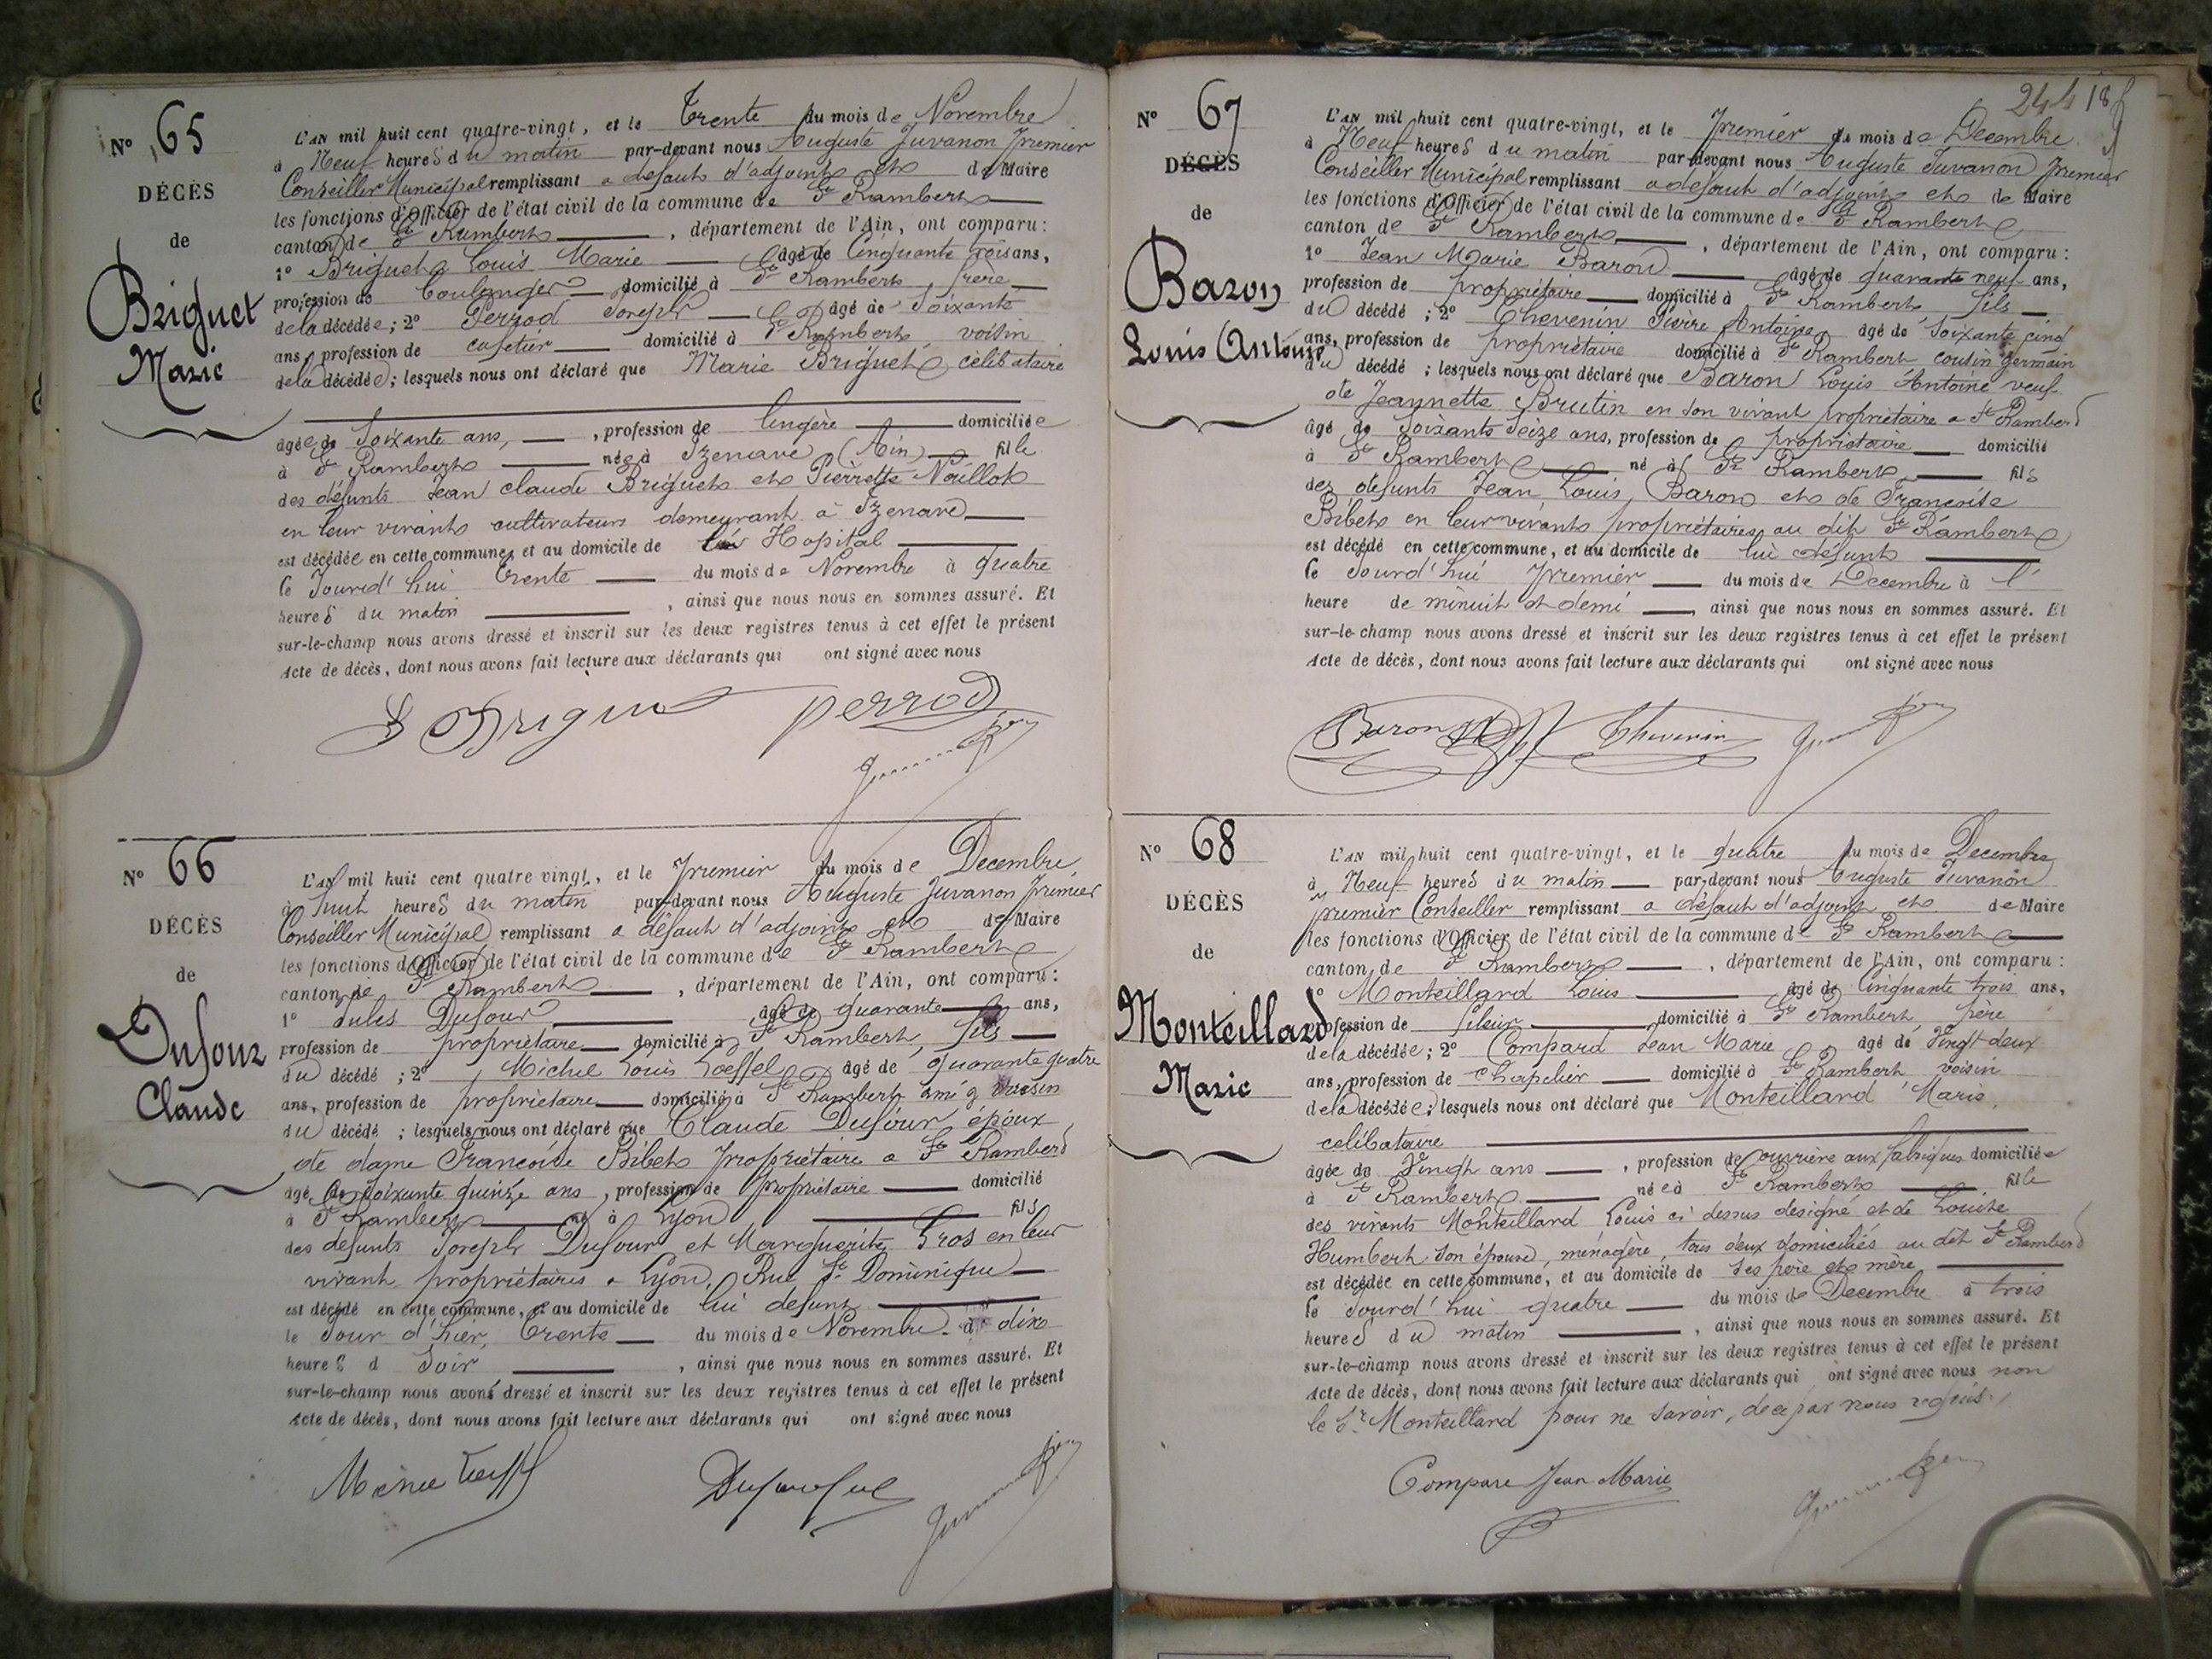 N° 65
DÉCÈS
de
Briguet
Marie
L'AN mil huit cent quatre-vingt, et le Trente du mois de Novembre
à Neuf heures du matin par-devant nous Auguste Juvanon Premier
Conseiller Municipal remplissant a défaut d'adjoint et de Maire
les fonctions d'Officier de l'état civil de la commune de St Rambert
canton de St Rambert, département de l'Ain, ont comparu :
1° Briguet Louis Marie âgé de Cinquante trois ans,
profession de boulanger domicilié à St Rambert, frère
de la décédée ; 2° Perrod Joseph âgé de Soixante
ans, profession de cafetier domicilié à St Rambert voisin
de la décédée ; lesquels nous ont déclaré que Marie Briguet, célibataire
âgée de Soixante ans, profession de lingère domiciliée
à St Rambert née à Izenave (Ain) fille
des défunts Jean Claude Briguet et Pierrette Noillot
en leur vivants cultivateurs demeurant à Izenave
est décédée en cette commune, et au domicile de Hopital
le Jourd'hui trente du mois de Novembre à quatre
heures du matin, ainsi que nous nous en sommes assuré. Et
sur-le-champ nous avons dressé et inscrit sur les deux registres tenus à cet effet le présent
Acte de décès, dont nous avons fait lecture aux déclarants qui ont signé avec nous
Perrod
N° 66
DÉCÈS
de
Dufour
Claude
L'AN mil huit cent quatre vingt, et le Premier du mois de Decembre
à huit heures du matin par-devant nous Auguste Juvanon Premier
Conseiller Municipal remplissant a défaut d'adjoint et de Maire
les fonctions d'Officier de l'état civil de la commune de St Rambert
canton de St Rambert, département de l'Ain, ont comparu :
1° Jules Dufour âgé de quarante ans,
profession de propriétaire domicilié à St Rambert, fils
du décédé ; 2° Michel Louis Loeffel âgé de quarante quatre
ans, profession de propriétaire domicilié à St Rambert ami voisin
du décédé ; lesquels nous ont déclaré que Claude Dufour, époux
de dame Françoise Bibet propriétaire a St Rambert
âgé de Soixante quinze ans, profession de propriétaire domicilié
à St Rambert né à Lyon fils
des défunts Joseph Dufour et Marguerite Gros en leur
vivant propriétaires a Lyon, Rue St Dominique
est décédé en cette commune, et au domicile de lui défunt
le Jour d'hier, trente du mois de Novembre à dix
heures d Soir, ainsi que nous nous en sommes assuré. Et
sur-le-champ nous avons dressé et inscrit sur les deux registres tenus à cet effet le présent
Acte de décès, dont nous avons fait lecture aux déclarants qui ont signé avec nous
N° 67
DÉCÈS
de
Baron
Louis Antoine
L'AN mil huit cent quatre-vingt, et le Premier du mois de Decembre
à Neuf heures du matin par-devant nous Auguste Juvanon Premier
Conseiller Municipal remplissant a défaut d'adjoint et de Maire
les fonctions d'Officier de l'état civil de la commune de St Rambert
canton de St Rambert, département de l'Ain, ont comparu :
1° Jean Marie Baron âgé de quarante neuf ans,
profession de propriétaire domicilié à St Rambert fils
du décédé ; 2° Thevenin Pierre Antoine âgé de Soixante cinq
ans, profession de propriétaire domicilié à St Rambert cousin germain
du décédé ; lesquels nous ont déclaré que Baron Louis Antoine veuf
de Jeannette Brutin en son vivant propriétaire a St Rambert
âgé de Soixante Seize ans, profession de propriétaire domicilié
à St Rambert né à St Rambert fils
des défunts Jean Louis Baron et de Françoise
Bibet en leur vivants propriétaires au dit St Rambert
est décédé en cette commune, et au domicile de lui défunt
le Jourd'hui Premier du mois de Decembre à l'
heure de minuit et demi, ainsi que nous nous en sommes assuré. Et
sur-le-champ nous avons dressé et inscrit sur les deux registres tenus à cet effet le présent
Acte de décès, dont nous avons fait lecture aux déclarants qui ont signé avec nous
Baron Thevenin
N° 68
DÉCÈS
de
Monteillard
Marie
L'AN mil huit cent quatre-vingt, et le quatre du mois de Decembre
à Neuf heures du matin par-devant nous Auguste Juvanon
premier Conseiller remplissant a défaut d'adjoint et de Maire
les fonctions d'Officier de l'état civil de la commune de St Rambert
canton de St Rambert, département de l'Ain, ont comparu :
1° Monteillard Louis âgé de Cinquante trois ans,
profession de fileur domicilié à St Rambert, père
de la décédée ; 2° Compard Jean Marie, âgé de Vingt deux
ans, profession de Chapelier domicilié à St Rambert voisin
de la décédée ; lesquels nous ont déclaré que Monteillard Marie,
celibataire
âgée de Vingt ans, profession de ouvrière aux fabriques domiciliée
à St Rambert née à St Rambert fille
des vivants Monteillard Louis ci dessus designé et de Louise
Humbert son épouse, ménagère, tous deux domiciliés au dit St Rambert
est décédée en cette commune, et au domicile de ses père et mère
le Jourd'hui quatre du mois de Decembre à trois
heures du matin, ainsi que nous nous en sommes assuré. Et
sur-le-champ nous avons dressé et inscrit sur les deux registres tenus à cet effet le présent
Acte de décès, dont nous avons fait lecture aux déclarants qui ont signé avec nous non
le Sr Monteillard pour ne savoir, de ce par nous requis.
Compare Jean Marie